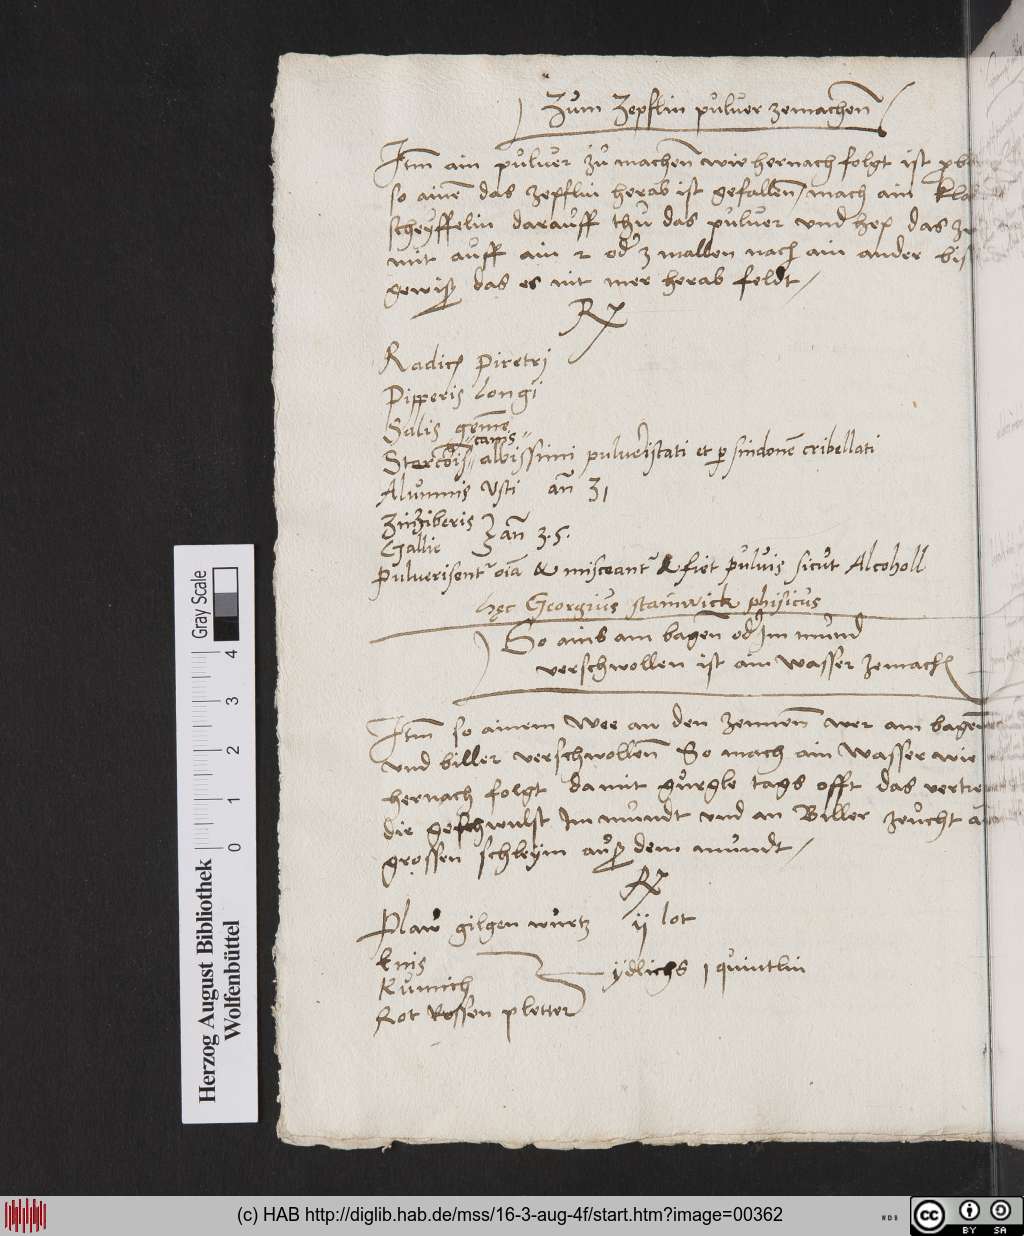 Zům Zepflin půlver zemachen̄
Jtm̄ ain půlver zů machen̄ wie hernach folgt ist
so ainē das zepflin herab ist gefallen / mach ain
scheyffelin darauff thů das pulver und hep das
mit auff ain 2 oder 3 mallen nach ain ander bis
gewiß das es nit mer herab feldt /
Rx
Radicis Piretri
Pipperis longi
Salis gemē
canis
Stercoris albissimi pulverisati et per sindonē cribellati
Alumnis Usti añ
Zinziberis
Gallie añ
Pulverisent oīa & misceant & fiet pulvis sicut Alcoholl
hęc Georgius stainwick phisicus
So ains am bagen̄ oder Im mund
verschwollen ist ain wasser zemachen
Jtm̄ so ainem Wee an den Zennen̄ wer am
und biller verschwollen̄ So mach ain Wasser wie
hernach folgt damit gürgle tags offt das
die geschwulst Im mundt und an Biller zeucht
grossen schleÿm auß dem mundt /
Rx
Plaw gilgen wurtz ij lot
Enis
Kumich ydlichs 1 quintlin
Rot Rossen pletter
Herzog August Bibliothek
Wolfenbüttel
0 1 2 3 4
Gray Scale
(c) HAB http://diglib.hab.de/mss/16-3-aug-4f/start.htm?image=00362
WDB
cc
BY SA